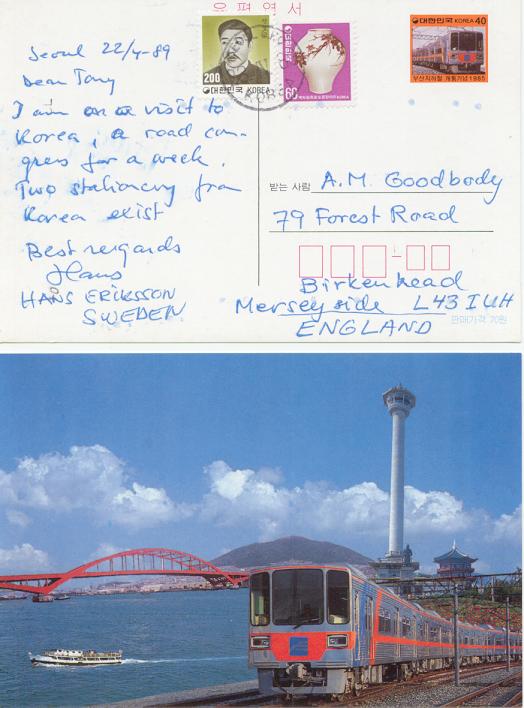 우편엽서
Seoul 22/4-89
Dear Tony
I am on a visit to
Korea, a road con-
gress for a week.
Two stationery from
Korea exist
Best regards
Hans
HANS ERIKSSON
SWEDEN
200
대한민국 KOREA
대한민국
60
대한민국 KOREA 40
부산지하철 개통기념 1985
받는 사람
A.M. Goodbody
79 Forest Road
Birkenhead
Merseyside L43 1UH
ENGLAND
판매가격 70원